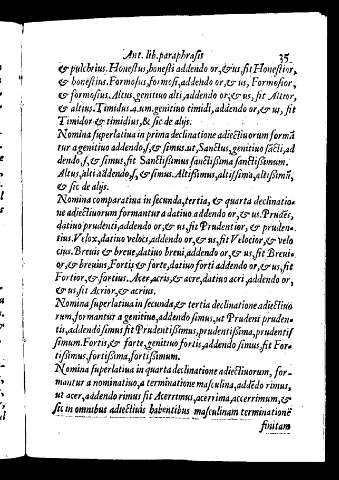 Ant. lib. paraphrasis 35
& pulchrius. Honestus, honesti addendo or, & us, fit Honestior,
& honestius. Formosus, formosi, addendo or, & us, Formosior,
& formosius. Altus, genitiuo alti, addendo or, & us, fit Altior,
& altius. Timidus.a.um. genitiuo timidi, addendo or, & us, fit
Timidor & timidius, & sic de alijs.
Nomina superlatiua in prima declinatione adiectiuorum formã
tur a genitiuo addendo, s, & simus. ut, Sanctus, genitiuo sãcti, ad
dendo, s, & simus, fit Sanctissimus sanctissima sanctissimum.
Altus, alti addendo, s, & simus. Altissimus, altissima, altissimũ,
& sic de alijs.
Nomina comparatiua in secunda, tertia, & quarta declinatio-
ne adiectiuorum formantur a datiuo addendo or, & us. Prudẽs,
datiuo prudenti, addendo or, & us, fit Prudentior, & pruden-
tius. Velox, datiuo veloci, addendo or, & us, fit Velocior, & velo
cius. Breuis & breue, datiuo breui, addendo or, & us, fit Breui-
or, & breuius, Fortis & forte, datiuo forti addendo or, & us, fit
Fortior, & fortius. Acer, acris, & acre, datiuo acri, addendo or,
& us, fit Acrior, & acrius.
Nomina superlatiua in secunda, & tertia declinatione adiectiuo
rum, formantur a genitiuo, addendo simus, ut Prudens pruden-
tis, addendo simus fit Prudentissimus, prudentissima, prudentis
simum. Fortis, & forte, genitiuo fortis, addendo simus, fit For-
tissimus, fortissima, fortissimum.
Nomina superlatiua in quarta declinatione adiectiuorum, for-
mantur a nominatiuo, a terminatione masculina, addẽdo rimus,
ut acer, addendo rimus fit Acerrimus, acerrima, accerrimum, &
sic in omnibus adiectiuis habentibus masculinam terminationẽ
finitam